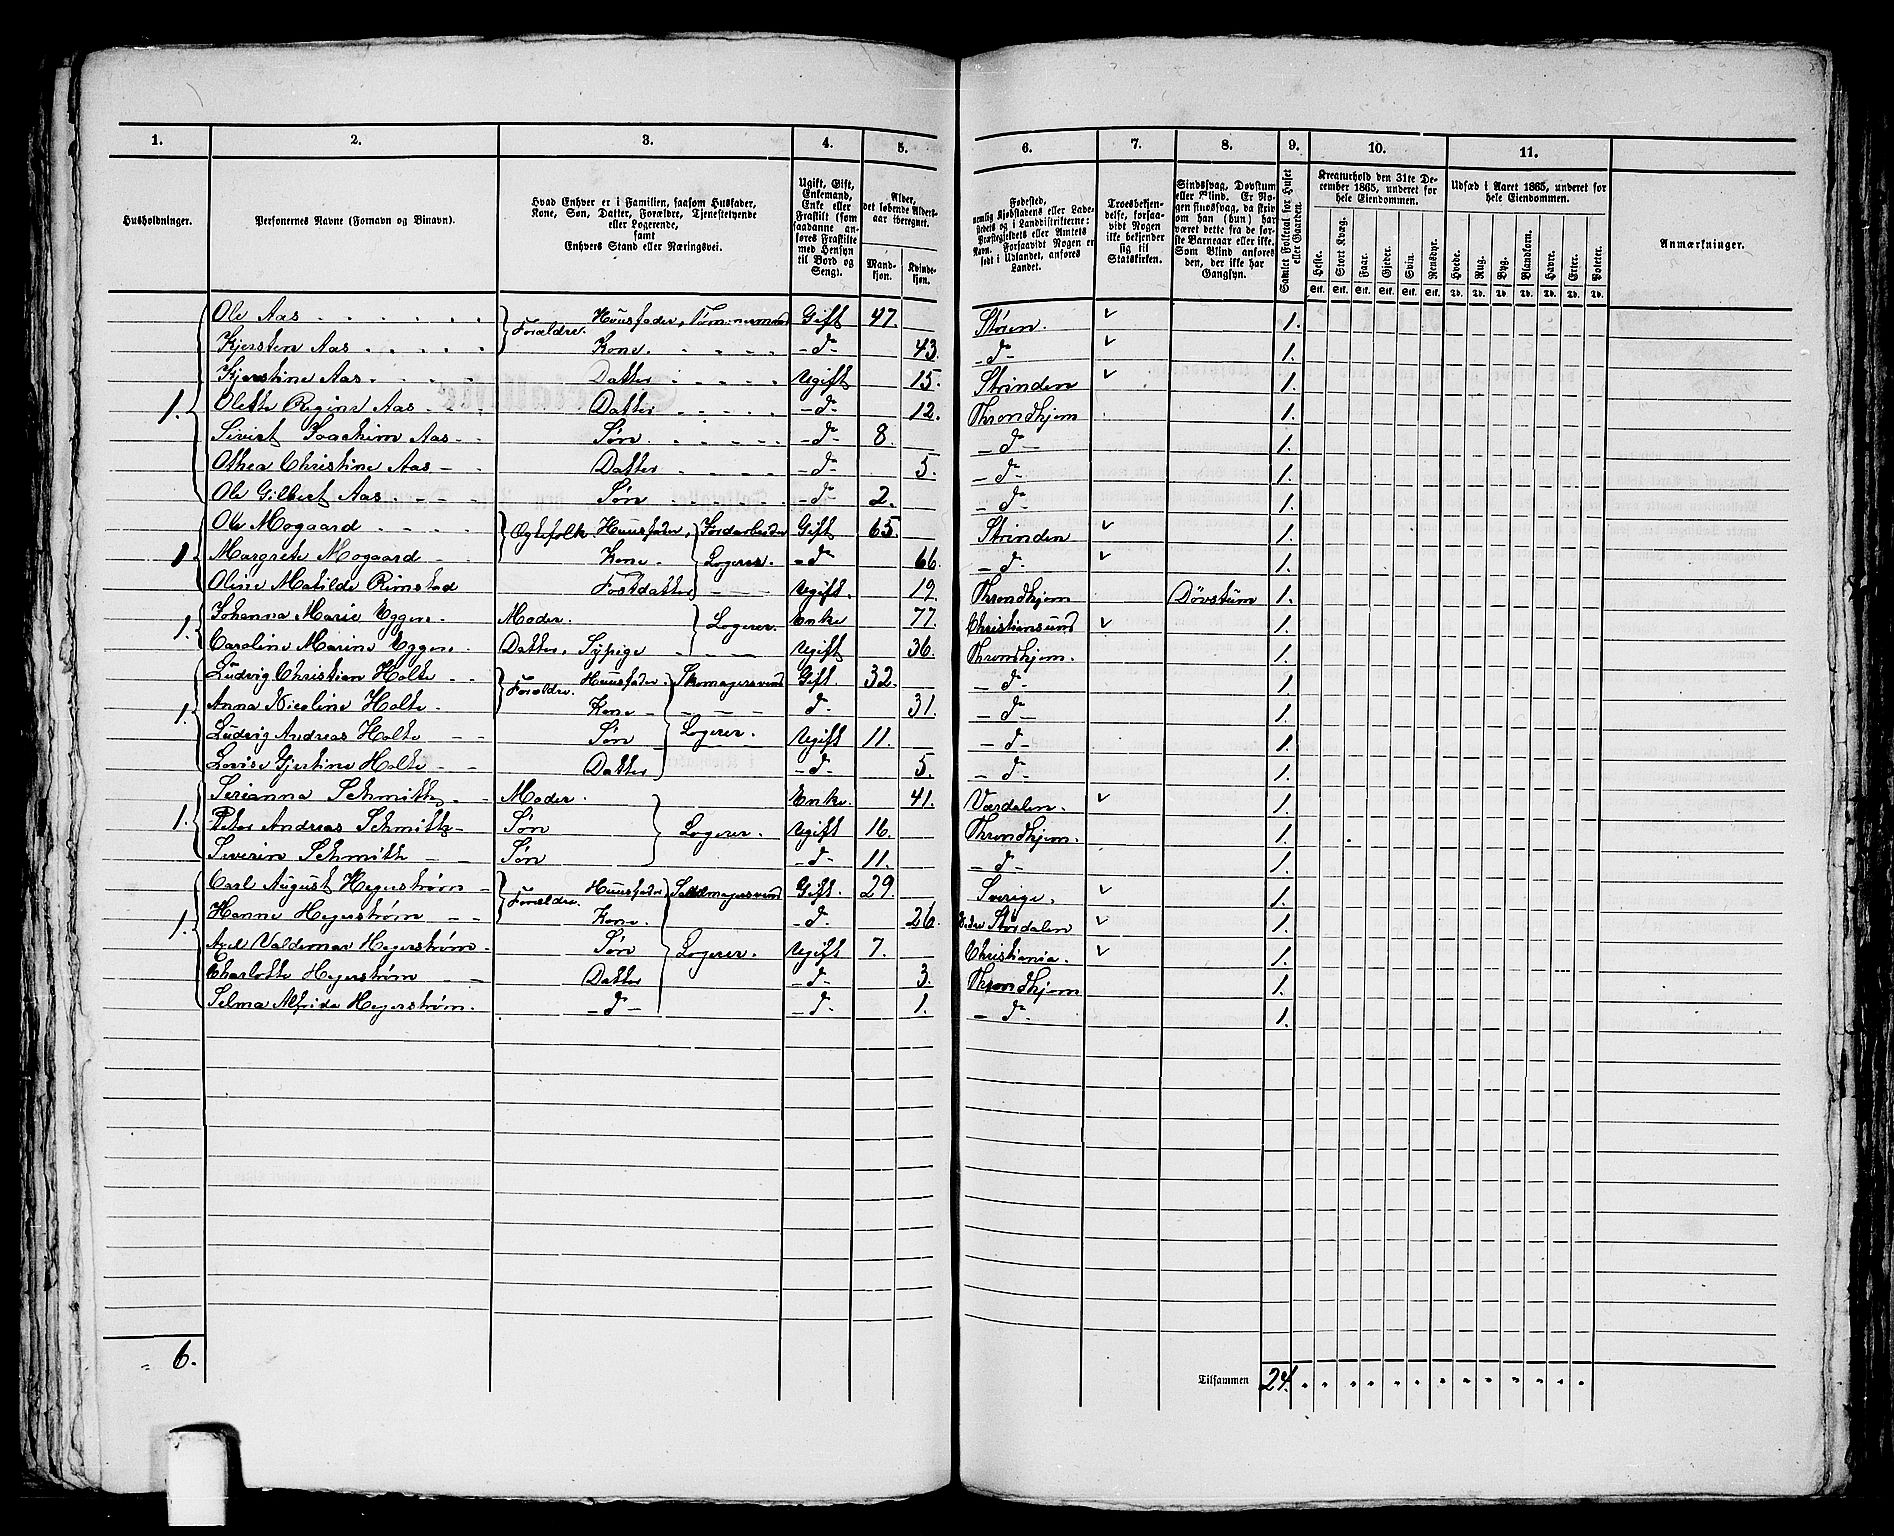 1. 2. 3. 4. 5. 6. 7. 8. 9. 10. 11.
Husholdninger.
Personernes Navne (Fornavn og Binavn).
Hvad Enhver er i Familien, saasom Husfader,
Kone, Søn, Datter, Forældre, Tjenestetyende
eller Logerende,
samt
Enhvers Stand eller Næringsvei.
Ugift, Gift,
Enkemand,
Enke eller
Fraskilt (som
saadanne an-
føres Fraskilte
med Hensyn
til Bord og
Seng).
Alder,
det løbende Alders-
aar iberegnet.
Mand-
kjøn.
Kvinde-
kjøn.
Fødested,
nemlig Kjøbstadens eller Lade-
stedets og i Landdistrikterne:
Præstegjeldets eller Amtets
Navn. Forsaavidt Nogen er
født i Udlandet, anføres
Landet.
Troesbekjen-
delse, forsaa-
vidt Nogen
ikke bekjender
sig til
Statskirken.
Sindssvag, Døvstum
eller Blind. Er No-
gen sindssvag, da skriv
om han (hun) har
været dette fra de før-
ste Barneaar eller ikke.
Som Blind anføres
den, der ikke har
Gangsyn.
Samlet Folketal for Huset
eller Gaarden.
Kreaturhold den 31te De-
cember 1865, underet for
hele Eiendommen.
Heste. Stort Kvæg. Faar. Gjeder. Svin. Rensdyr.
Stk. Stk. Stk. Stk. Stk. Stk.
Udsæd i Aaret 1865, underet for
hele Eiendommen.
Hvede. Rug. Byg. Blandkorn. Havre. Erter. Poteter.
Td. Td. Td. Td. Td. Td. Td.
Anmærkninger.
Ole Aas Forældre. Huusfader, Tømmermand Gift 47. Stören. 1.
Kjersten Aas Kone. -d- 43. -d- 1.
Kjerstine Aas Datter Ugift 15. Strinden 1.
1. Olette Regine Aas Datter -d- 12. Throndhjem 1.
Sivert Joachim Aas Søn. -d- 8. -d- 1.
Othea Christine Aas Datter -d- 5. -d- 1.
Ole Gilbert Aas Søn -d- 2. -d- 1.
Ole Mogaard Egtefolk Huusfader, Jordarbeider Gift 65. Strinden 1.
1. Margrete Mogaard Kone. Logerer. -d- 66. -d- 1.
Oline Matilde Rimstad Fostdatter Ugift. 19 Throndhjem Døvstum 1.
Johanna Marie Eggen Moder. Enke 77. Christiansund 1.
1. Caroline Marine Eggen Datter, Sypige Logerer. Ugift 36. Throndhjem. 1.
Ludvig Christian Holte Forældre. Huusfader. Skomagersvend Gift 32. -d- 1.
Anna Nicoline Holte Kone d. 31. -d- 1.
1. Ludvig Andreas Holte Søn Logerer. Ugift 11. -d- 1.
Lovise Gjertine Holte Datter -d- 5. -d- 1.
Serianna Schmith Moder. Enke. 41. Værdalen. 1.
1. Peter Andreas Schmith Søn Logerer. Ugift 16. Throndhjem. 1.
Severin Schmith Søn -d- 11. -d- 1.
Carl August Hegerstrøm Forældre. Huusfader Sadelmagersvend Gift. 29. Sverige. 1.
1. Hanne Hegerstrøm Kone. -d- 26. Nedre Stördalen 1.
Axel Valdemar Hegerstrøm Søn Logerer. Ugift 7. Christiania. 1.
Charlotte Hegerstrøm Datter -d- 3. Throndhjem 1.
Selma Alfride Hegerstrøm. -d- -d- 1. -d- 1.
6. Tilsammen 24.